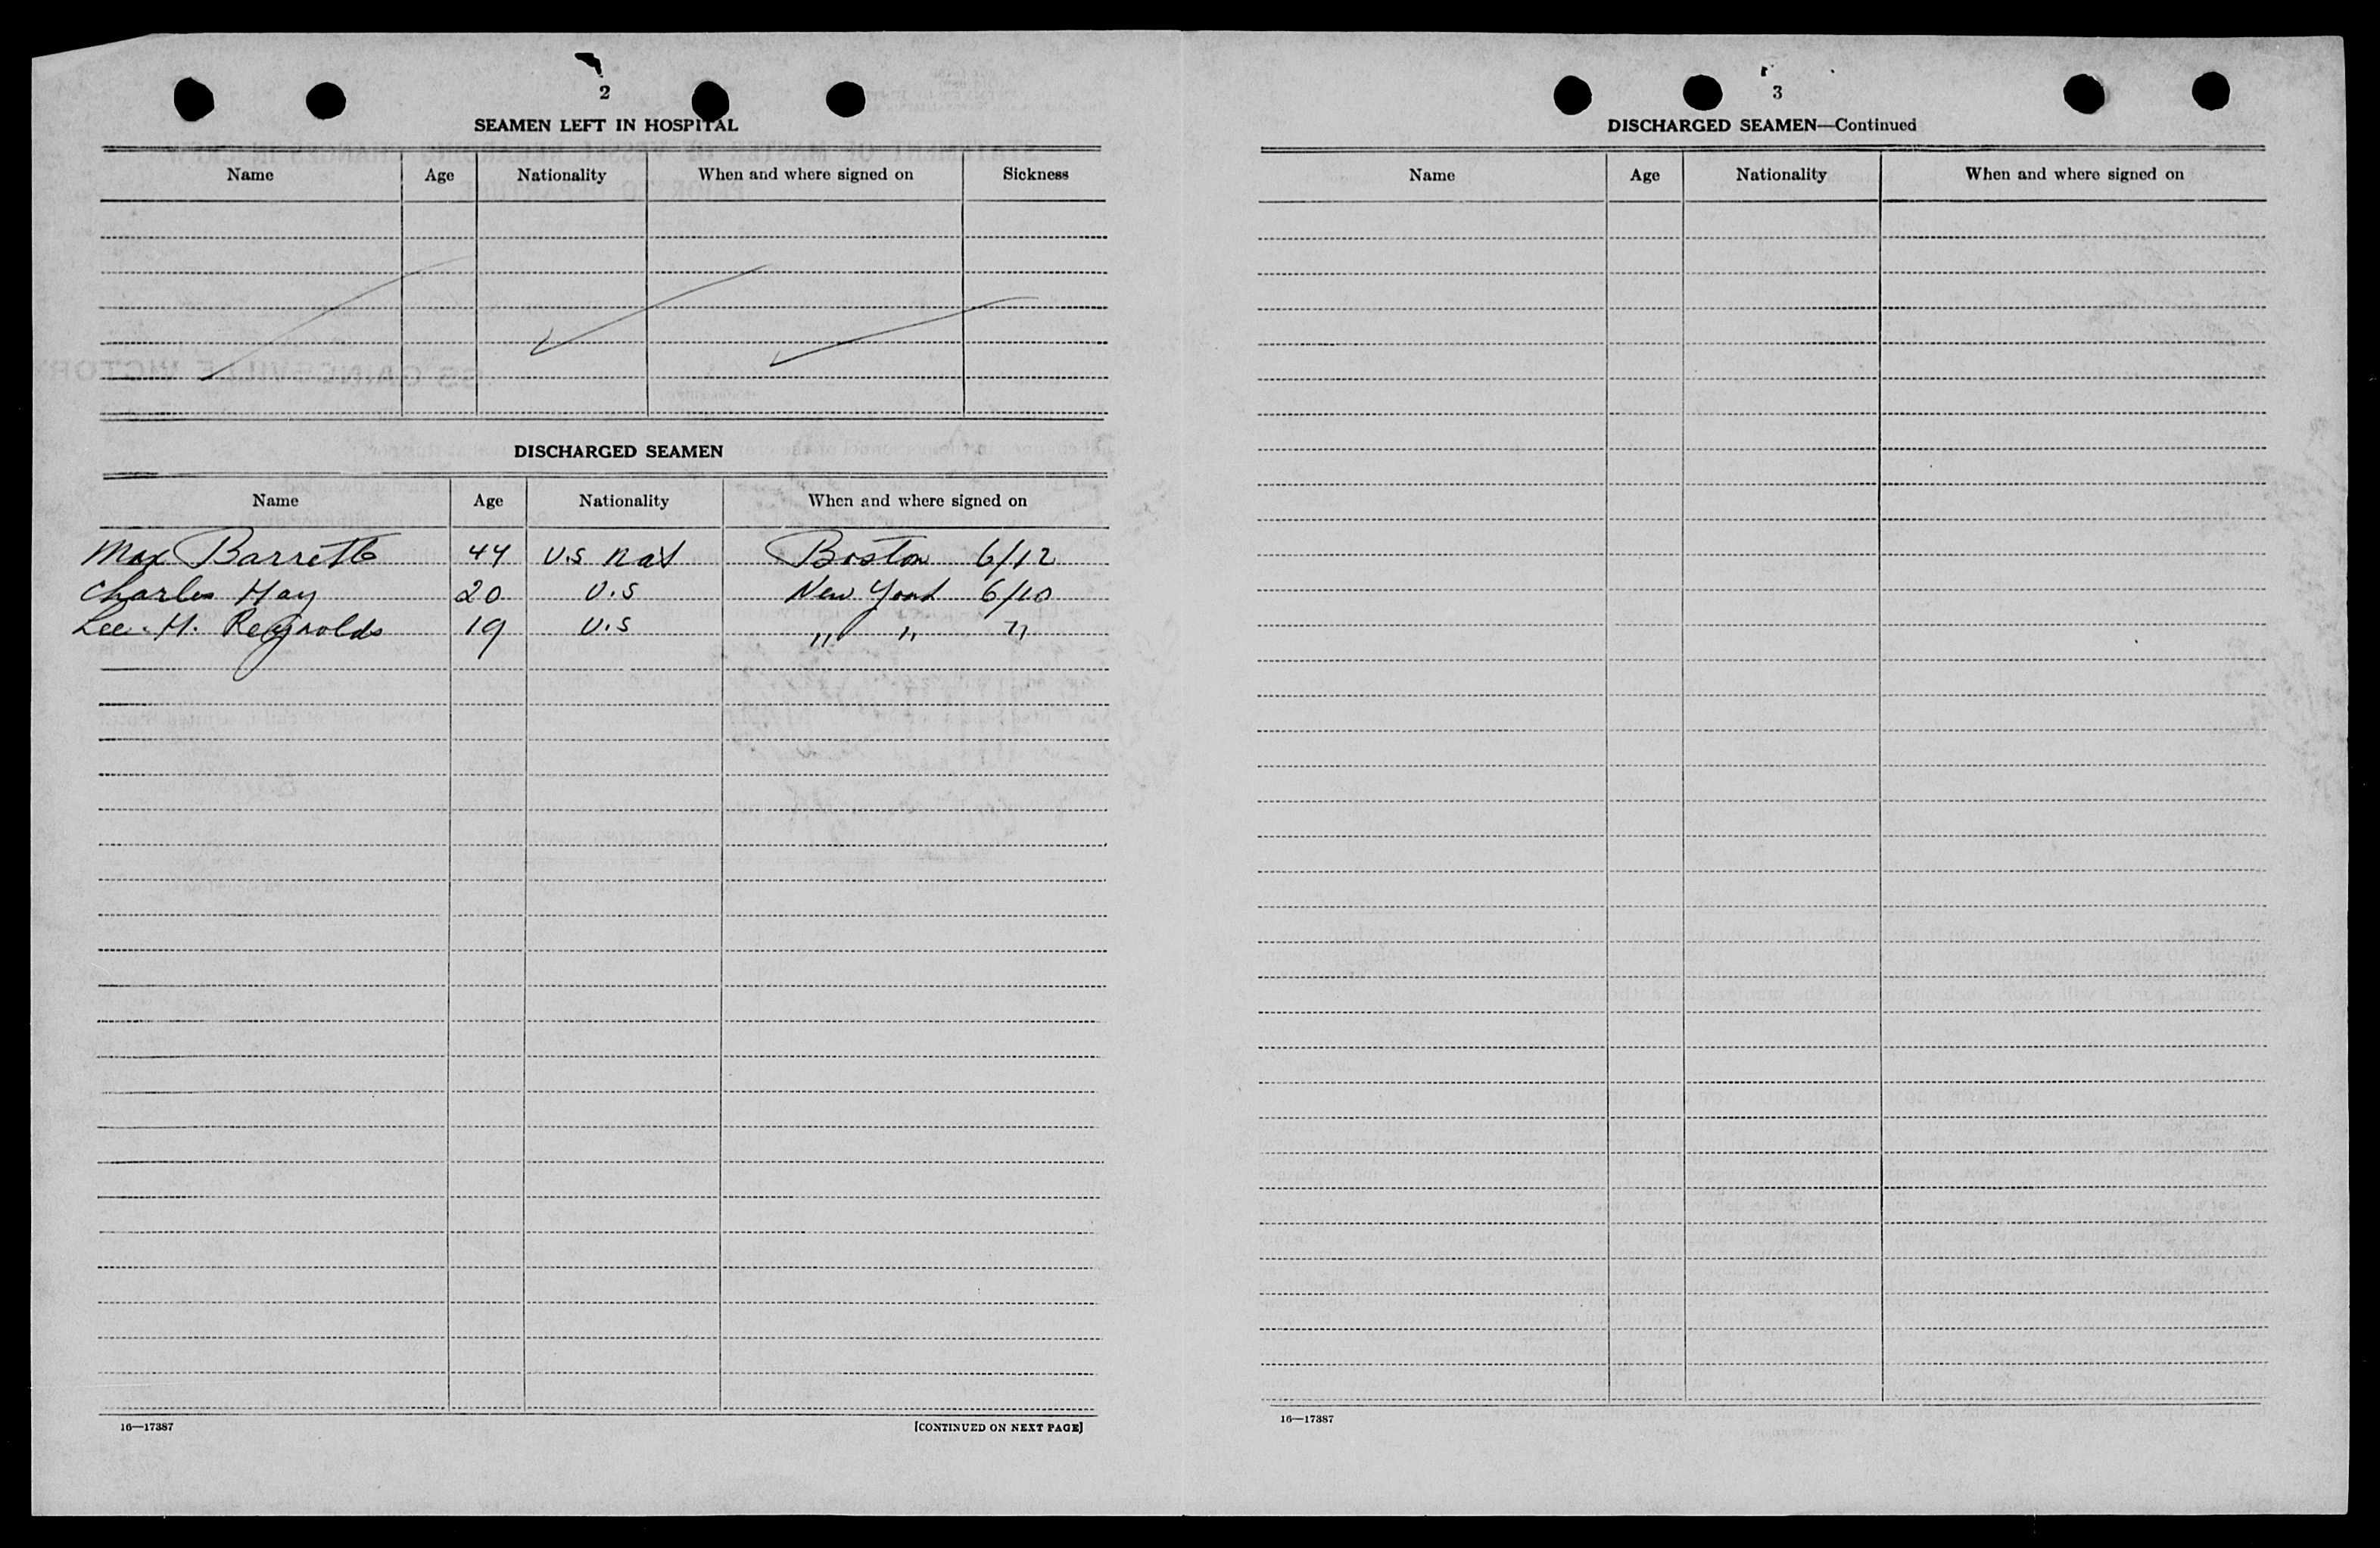 2
SEAMEN LEFT IN HOSPITAL
Name Age Nationality When and where signed on Sickness
DISCHARGED SEAMEN
Name Age Nationality When and where signed on
Max Barrett 44 U.S nat Boston 6/12
Charles Hay 20 U.S New York 6/10
Lee. H. Reynolds 19 U.S " " "
16—17387 [CONTINUED ON NEXT PAGE]
3
DISCHARGED SEAMEN—Continued
Name Age Nationality When and where signed on
16—17387